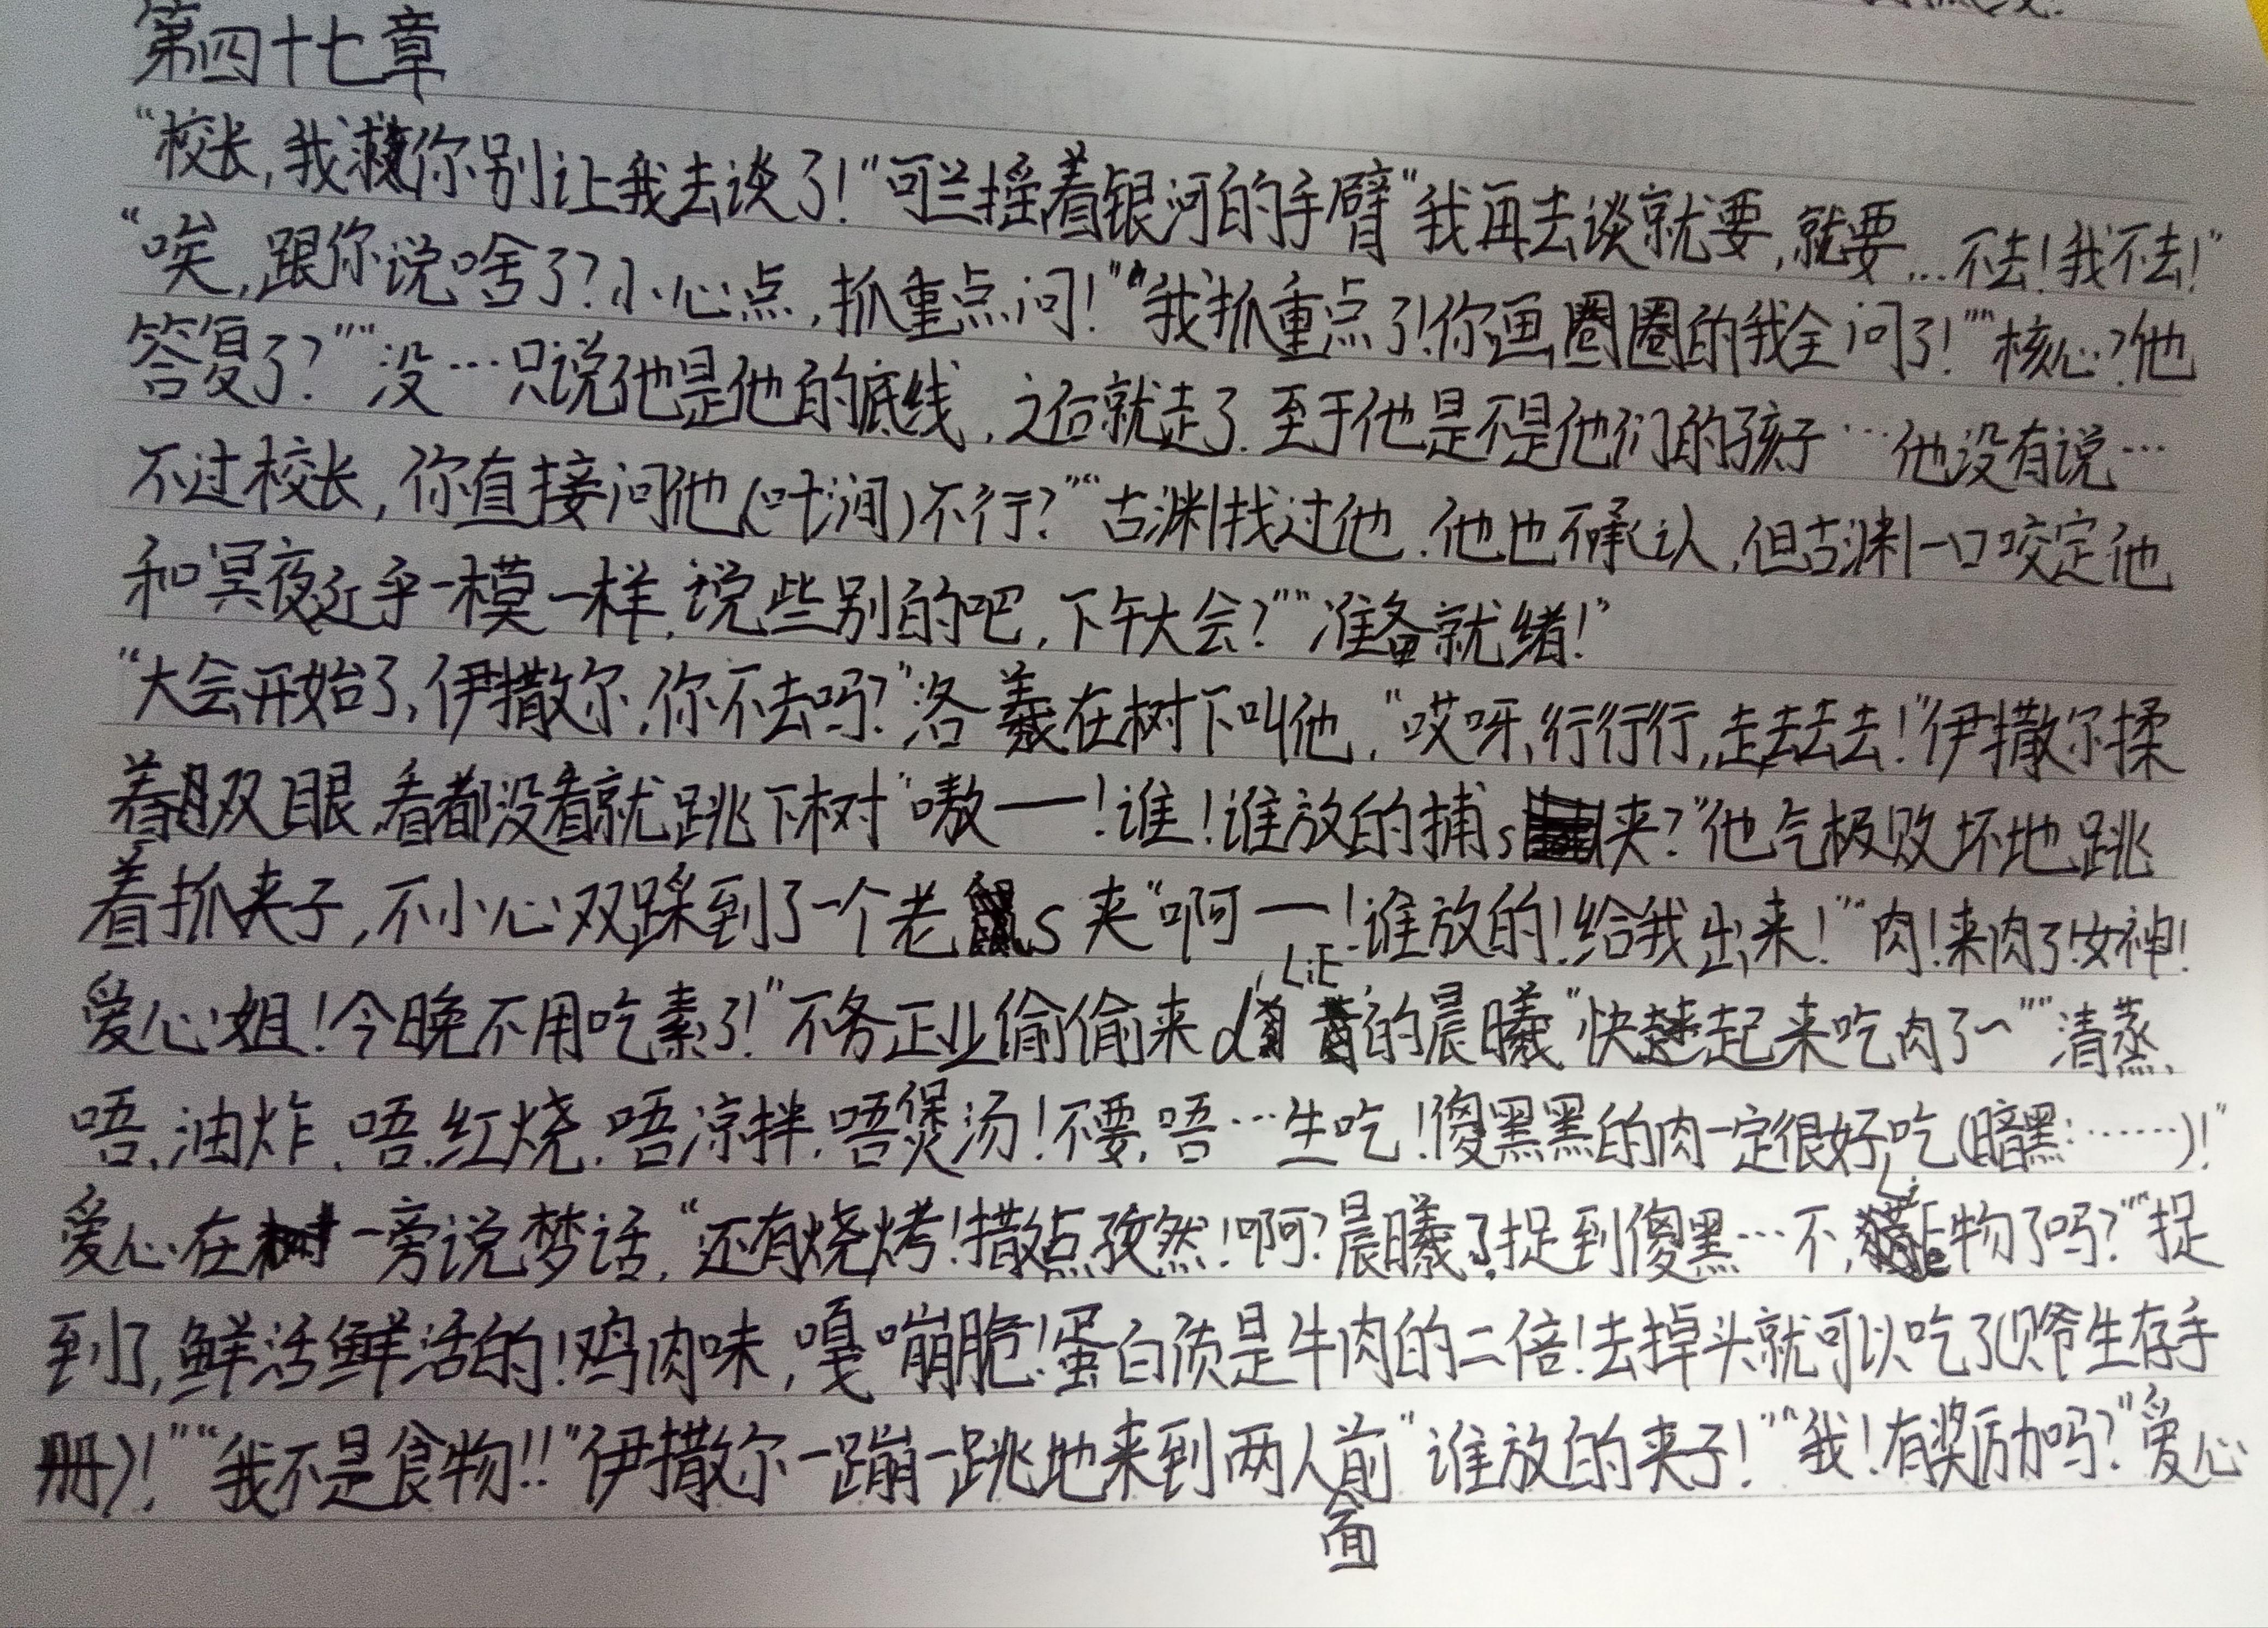 第四十七章
“校长,我求你别让我去谈了!”可兰摇着银河的手臂“我再去谈就要,就要…不去!我不去!”
“唉,跟你说啥了?小心点,抓重点问!”“我抓重点了!你画圈圈的我全问了!”“核心?他
答复了?”“没…只说他是他的底线,之后就走了.至于他是不是他们的孩子…他没有说…
不过校长,你直接问他(叶涧)不行?”“古渊找过他.他也不承认,但古渊一口咬定他
和冥夜近乎一模一样.说些别的吧,下午大会?”“准备就绪!”
“大会开始了,伊撒尔.你不去吗?”洛羲在树下叫他,“哎呀,行行行,走去去去!”伊撒尔揉
着双眼,看都没看就跳下树“嗷——!谁!谁放的捕s夹?”他气极败坏地跳
着抓夹子,不小心双踩到了一个老s夹“啊——!谁放的!给我出来!”“肉!来肉了!女神!
爱心姐!今晚不用吃素了!”不务正业偷偷来d LiE的晨曦“快起来吃肉了~”“清蒸,
唔,油炸,唔,红烧,唔凉拌,唔煲汤!不要,唔…生吃!傻黑黑的肉一定很好吃(暗黑:……)!”
爱心在一旁说梦话,“还有烧烤!撒点孜然!啊?晨曦了捉到傻黑…不,Lie物了吗?”“捉
到了,鲜活鲜活的!鸡肉味,嘎嘣脆!蛋白质是牛肉的二倍!去掉头就可以吃了(贝爷生存手
册)!”“我不是食物!!”伊撒尔一蹦一跳地来到两人前面“谁放的夹子!”“我!有奖励吗?”爱心